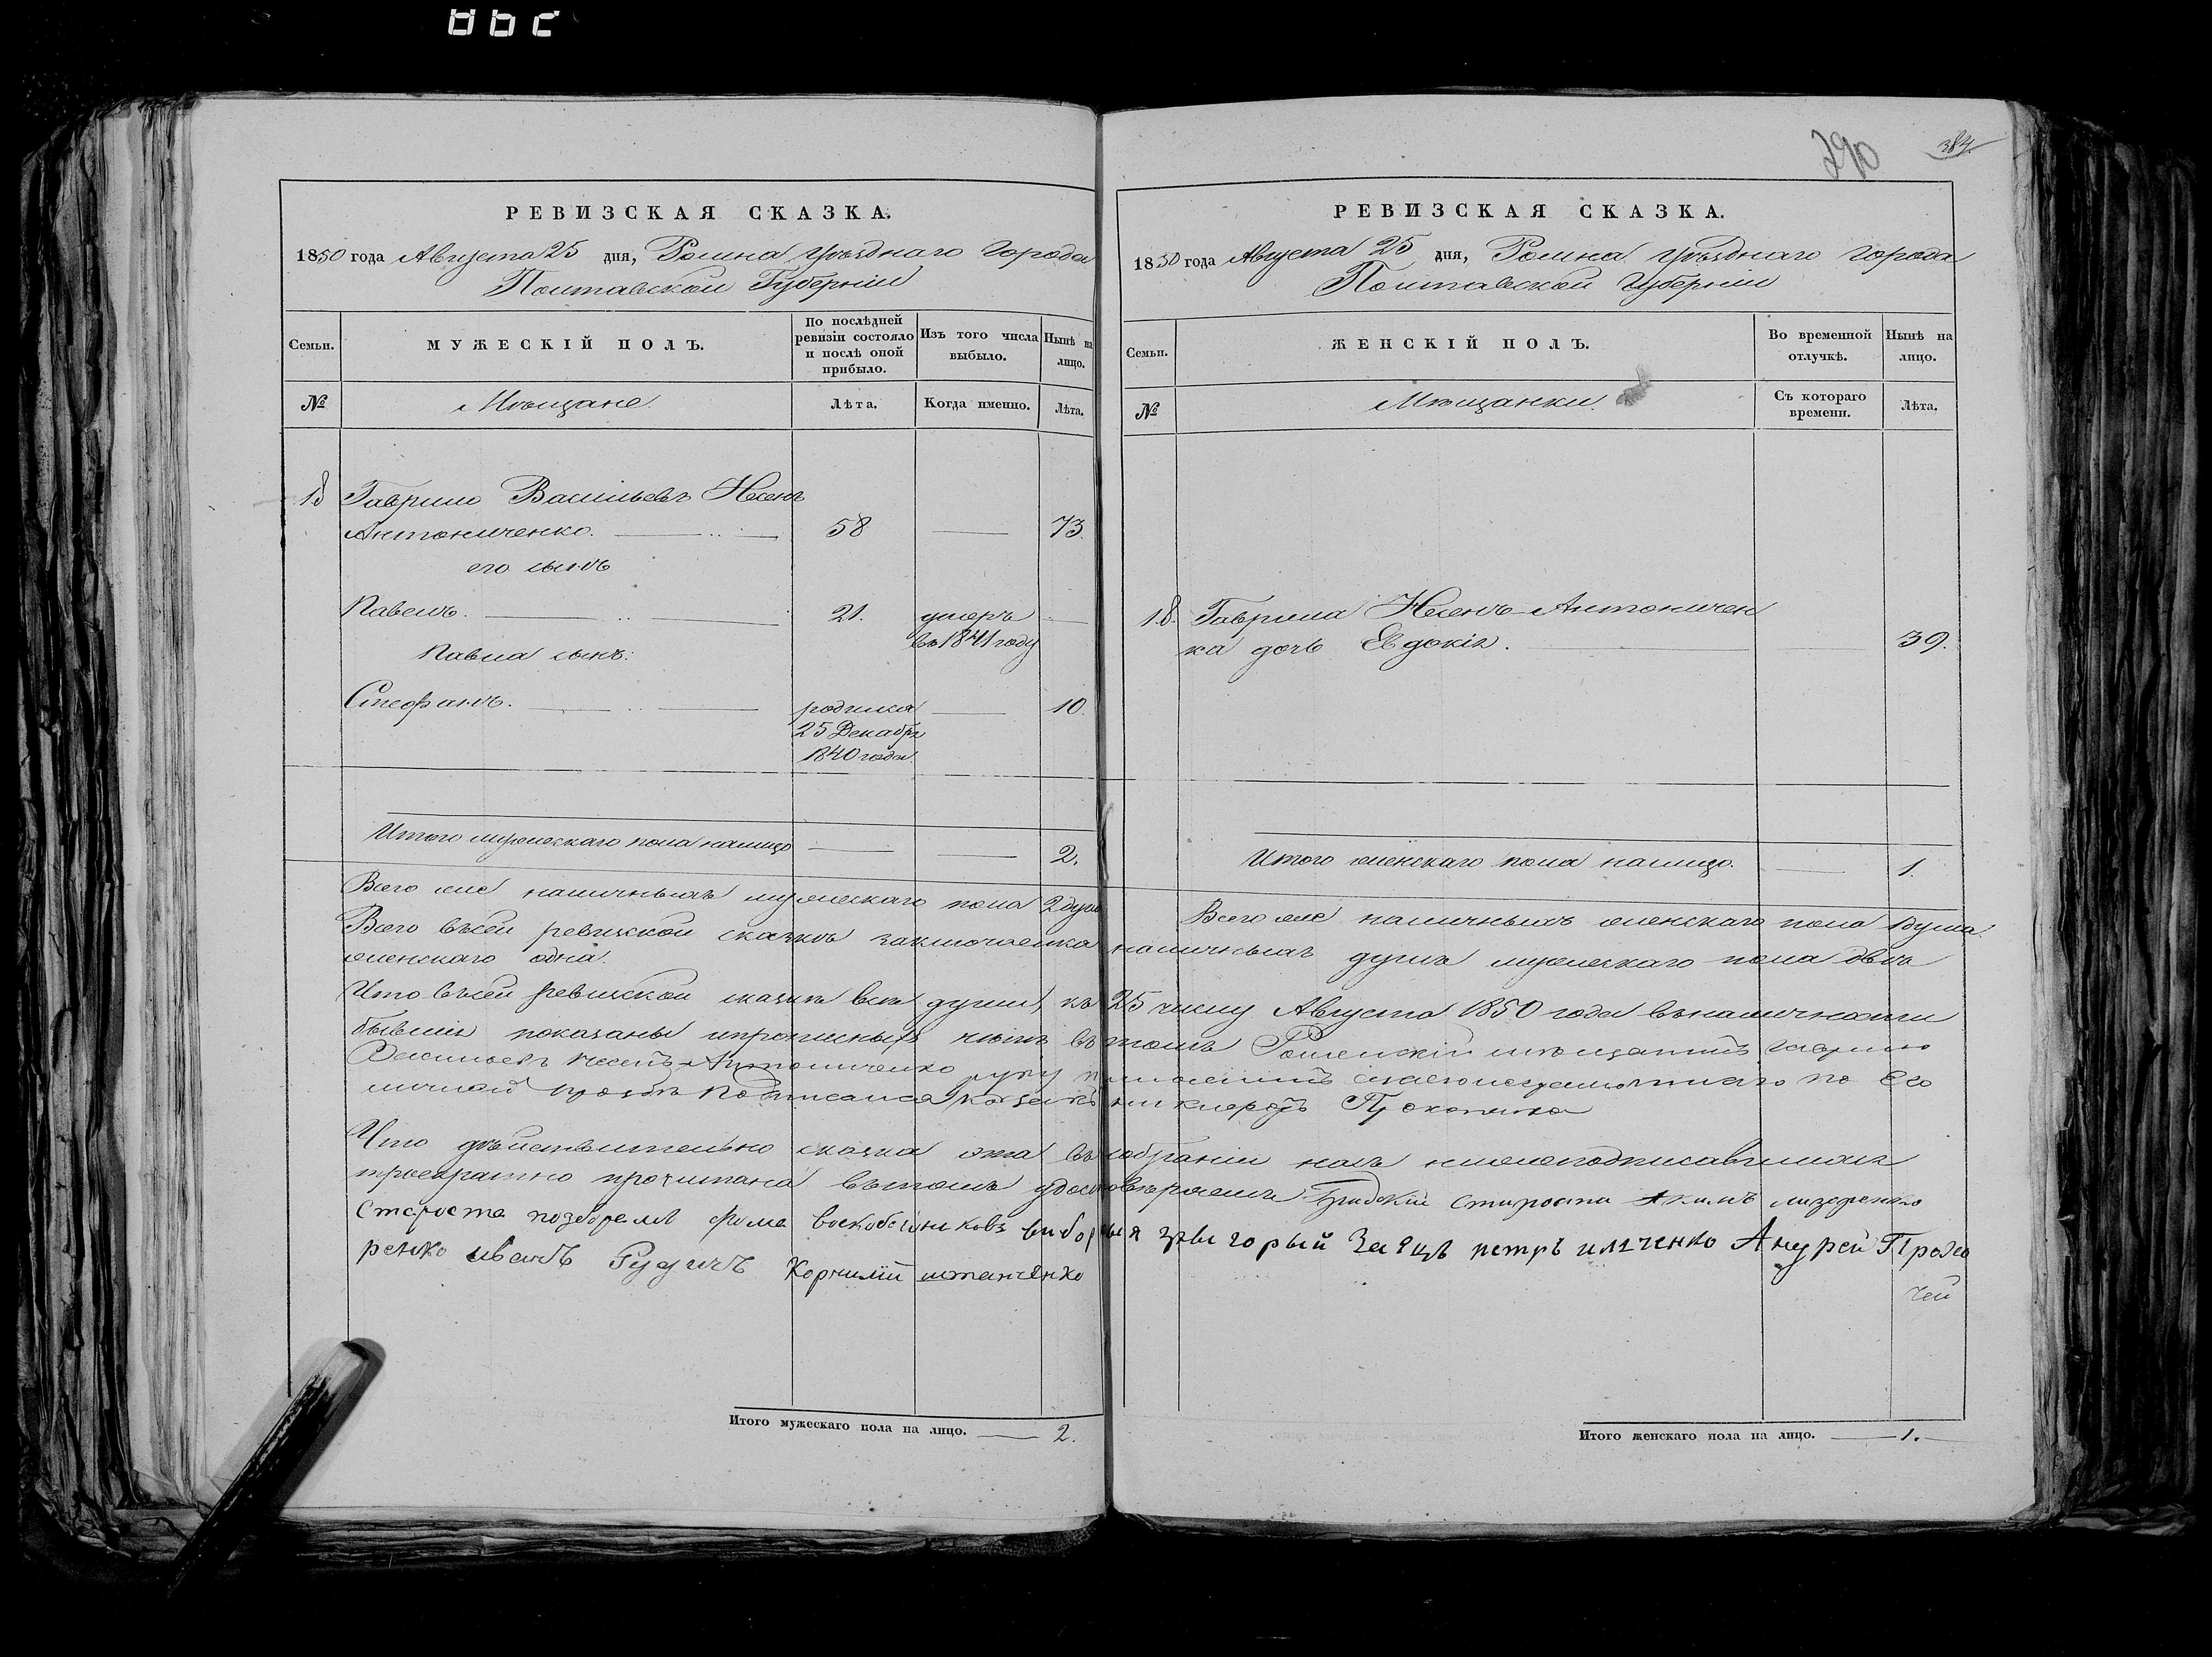 290
384
РЕВИЗСКАЯ СКАЗКА.
1850 года Августа 25 дня, Ромна уѣзднаго города
Полтавской Губерніи
Семьи.
МУЖЕСКІЙ ПОЛЪ.
По послѣдней ревизіи состояло и послѣ оной прибыло.
Изъ того числа выбыло.
Нынѣ на лицо.
№
Мѣщане.
Лѣта.
Когда именно.
Лѣта.
18 Гаврило Васильевъ Несенъ
Антониченко. 58 73.
его сынъ
Павелъ. 21. умеръ
въ 1841 году
Павла сынъ:
Стефанъ. родился 10.
25 Декабря
1840 года.
Итого мужескаго пола налицо 2.
Всего же наличныхъ мужескаго пола 2 души
Итого мужескаго пола на лицо. 2.
РЕВИЗСКАЯ СКАЗКА.
1850 года Августа 25 дня, Ромна уѣзднаго города
Полтавской Губерніи
Семьи.
ЖЕНСКІЙ ПОЛЪ.
Во временной отлучкѣ.
Нынѣ на лицо.
№
Мѣщанки.
Съ котораго времени.
Лѣта.
18. Гаврила Несенъ-Антоничен
ка дочь Евдокія. 39.
Итого женскаго пола налицо. 1.
Всего же наличныхъ женскаго пола душа.
Всего въ сей ревизской сказкѣ заключается наличныхъ душъ мужескаго пола двѣ
женскаго одна.
Что въ сей ревизской сказкѣ всѣ души, къ 25 числу Августа 1850 года въ наличности
бывшія показаны и прописныхъ нѣтъ въ томъ Роменскій мѣщанинъ Гаврило
Васильевъ Несенъ-Антониченко руку
личной прозбѣ Подписался Козакъ Прокопенко
Что дѣйствительно сказка эта въ собраніи насъ нижеподписавшихся
троекратно прочитана въ томъ удостовѣряемъ Градскій староста Акимъ
Староста фома воскобойниковъ выборныя Заяцъ петръ илченко Андрей
иванъ Рудичъ Корнилій штанченко
Итого женскаго пола на лицо. 1.